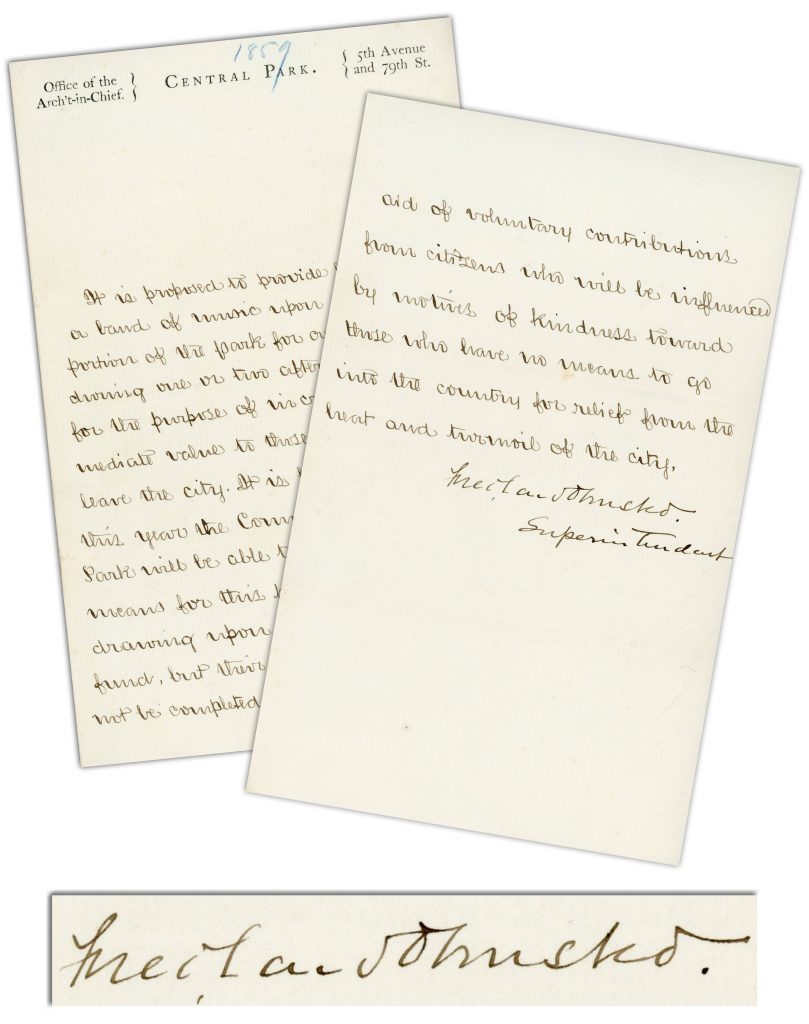 1859
Office of the
Arch't-in-Chief.
CENTRAL PARK.
5th Avenue
and 79th St.
It is proposed to provide
a band of music upon
portion of the park for
during one or two after
for the purpose of inc
mediate value to those
leave the city. It is
this year the Com
Park will be able t
means for this
drawing upon
fund, but their
not be completed
aid of voluntary contributions
from citizens who will be influenced
by motives of kindness toward
those who have no means to go
into the country for relief from the
heat and turmoil of the city.
Fred. Law Olmsted.
Superintendent
Fred. Law Olmsted.